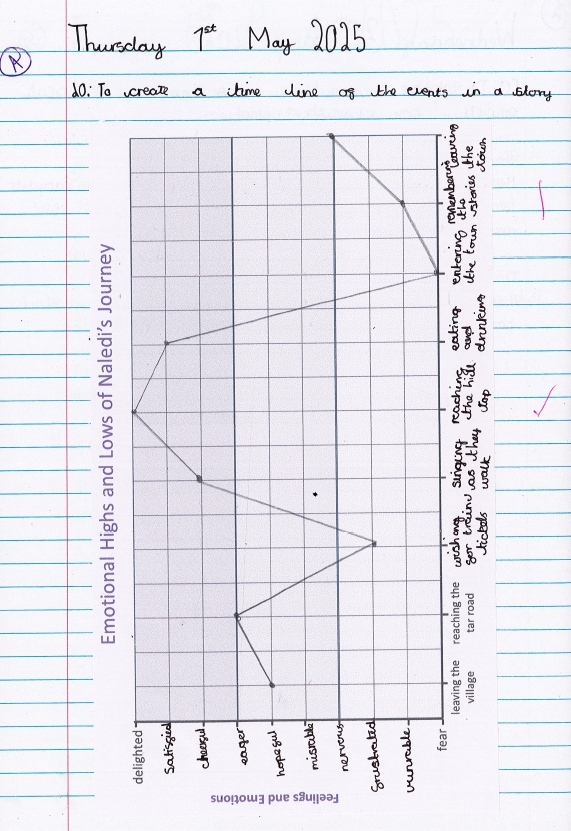 Thursday 1st May 2025
A
LO: To create a time line of the events in a story
Emotional Highs and Lows of Naledi's Journey
Feelings and Emotions
delighted
Satisfied
cheerful
eager
hopeful
misrable
nervous
frustrated
vunrable
fear
leaving the
village
reaching the
tar road
wishing
for train
tickets
singing
as they
walk
reaching
the hill
top
eating
and
drinking
entering
the town
remembering
the
stories
leaving
the
town